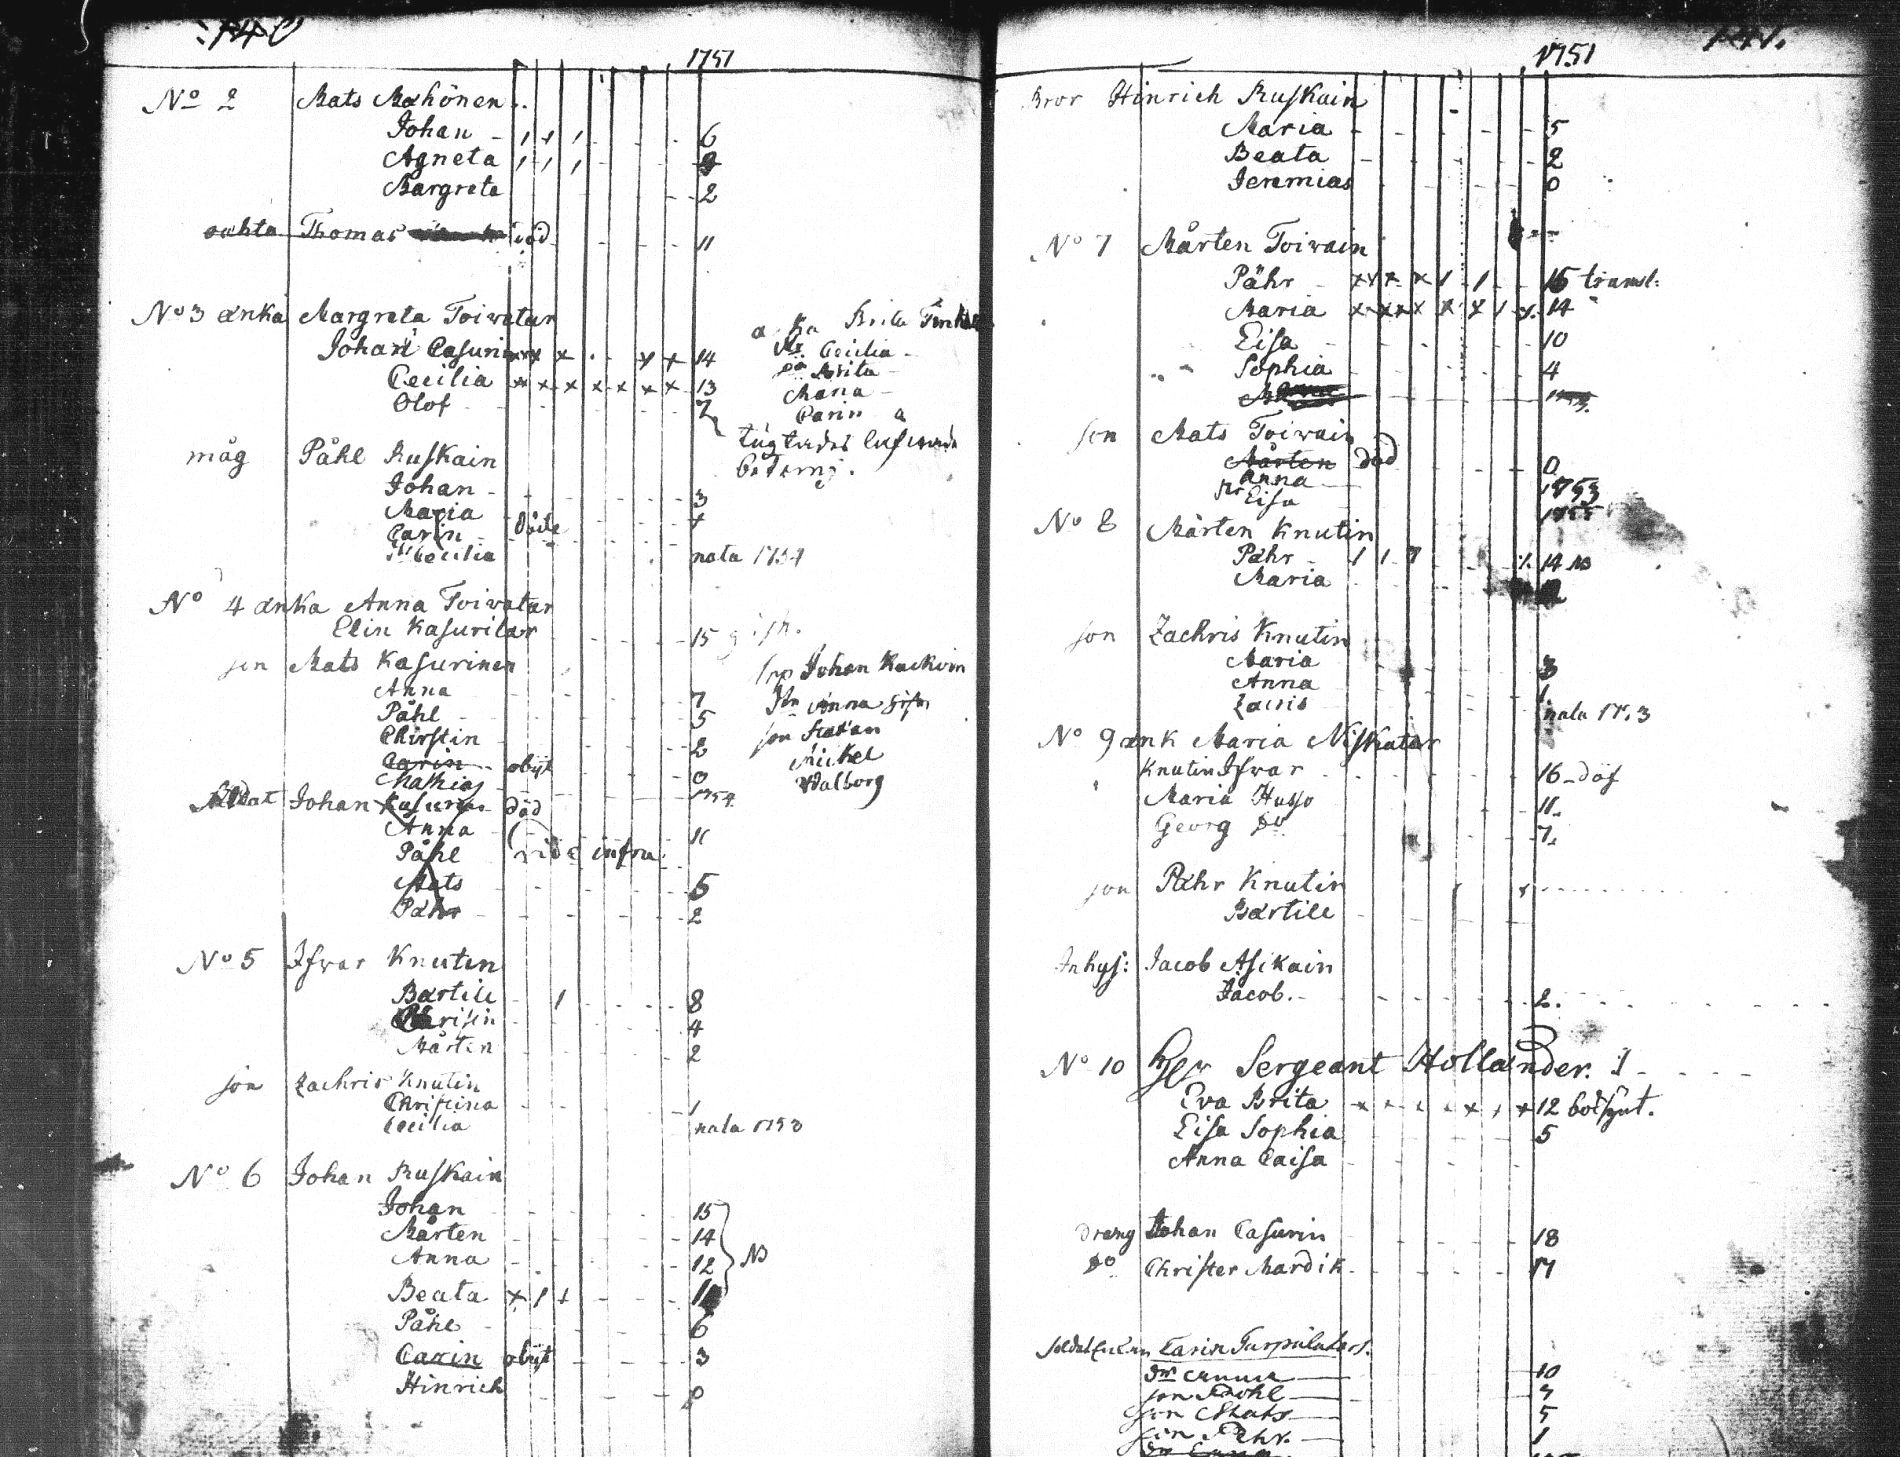 140
1751
No 2 Mats Makönen
Johan 6
Agneta 9
Margreta 2
Thomas död 11
No 3 änka Margreta Toiwatar
Johan Casurinen 14
Cecilia 13
Olof 7
Brita
Cecilia
Brita
Maria
Carin
måg Påhl Ruskain
Johan 3
Maria 1
Carin döde
Cecilia nata 1754
No 4 änka Anna Toiwatar
Elin Kasuritar 15
son Mats Kasurinen
Anna 7
Påhl 5
Chirstin 2
Carin obijt 0
Mathias 1754
Johan Kuckoin
Anna
son Staffan
Michel
Walborg
Soldat Johan Kasurinen död
Anna 11
Påhl vide infra
Mats 5
Pähr 2
No 5 Ifwar Knutin
Bärtill 8
Chrisin 4
Mårten 2
son Zachris Knutin
Christina 1
Cecilia nata 1753
No 6 Johan Ruskain
Johan 15
Mårten 14
Anna 12 NB
Beata
Påhl 6
Carin obijt 3
Hinrich 0
141.
1751
Bror Hinrich Ruskain
Maria 5
Beata 2
Jeremias 0
No 7 Mårten Toiwain
Pähr 15 transl:
Maria 14
Elsa 10
Sophia 4
son Mats Toiwain
Mårten död 0
Anna 1753
Elsa 1755
No 8 Mårten Knutin
Pähr 14
Maria
son Zachris Knutin
Maria 3
Anna 1
Zacris nata 1753
No 9 änk Maria Niskatar
Knutin Ifwar 16 döf
Maria Husso 11
Georg Do 7
son Pähr Knutin
Bärtill
Inhys: Jacob Asikain
Jacob 2.
No 10 Herr Sergeant Hollander.
Eva Brita 12
Elsa Sophia 5
Anna Caisa
dräng Johan Casurin 18
Do Christer Mardik 17
Carin
Dr Anna 10
son Pohl 7
son Mats 5
son Pehr 1